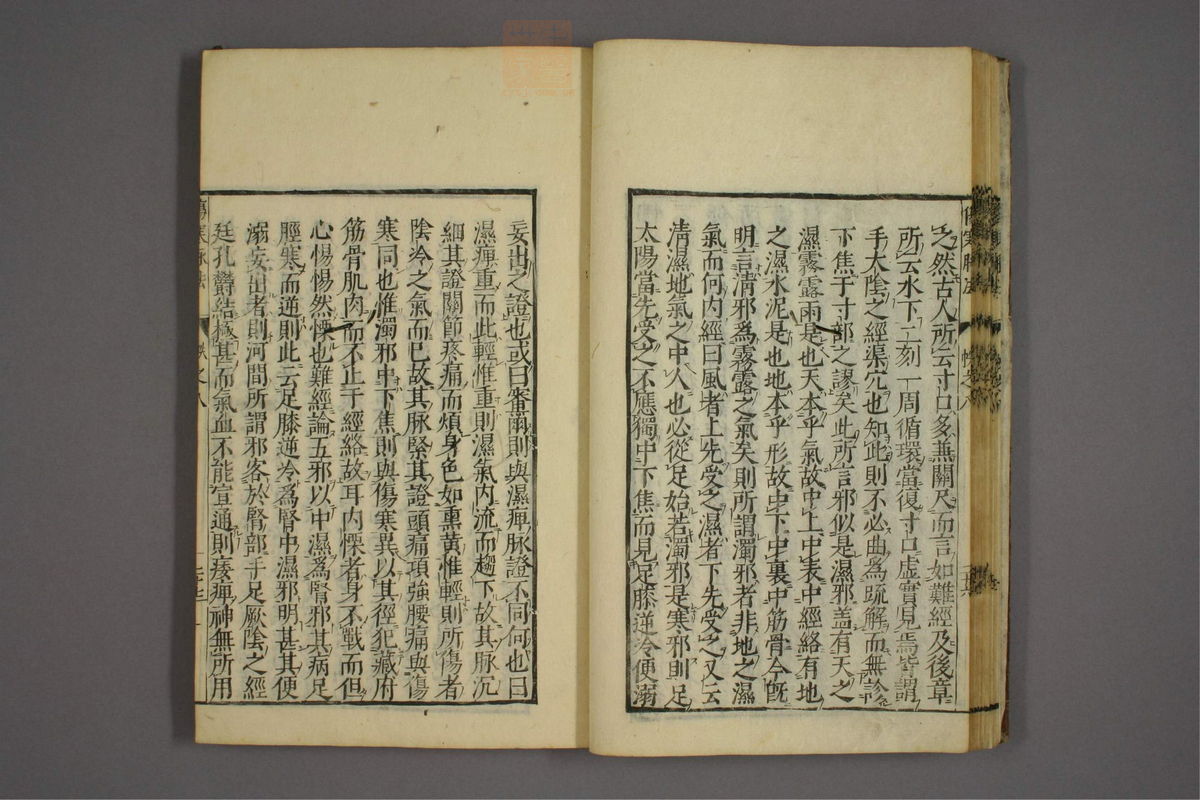 之然古人所云寸口多兼關尺而言如難經及後章
所云水下二刻一周循環當復寸口虛實見焉皆謂
手大陰之經渠穴也知此則不必曲為疏解而無診
下焦于寸部之謬矣此所言邪似是濕邪盖有天之
濕霧露雨是也天本乎氣故中上中表中經絡有地
之濕水泥是也地本乎形故中下中裏中筋骨今旣
明言清邪為霧露之氣矣則所謂濁邪者非地之濕
氣而何内經曰風者上先受之濕者下先受之又云
清濕地氣之中人也必從足始若濁邪是寒邪則足
太陽當先受之不應獨中下焦而見足膝逆冷便溺
妄出之證也或曰審爾則與濕痺脉證不同何也曰
濕痺重而此輕惟重則濕氣内流而趨下故其脉沉
細其證關節疼痛而煩身色如熏黄惟輕則所傷者
陰冷之氣而已故其脉緊其證頭痛項強腰痛與傷
寒同也惟濁邪中下焦則與傷寒異以其徑犯藏府
筋骨肌肉而不止于經絡故耳内慄者身不戰而但
心惕惕然慄也難經論五邪以中濕為腎邪其病足
脛寒而逆則此云足膝逆冷為腎中濕邪明甚其便
溺妄出者則河間所謂邪客於腎部手足厥陰之經
廷孔欝結極甚而氣血不能宣通則痿痺神無所用